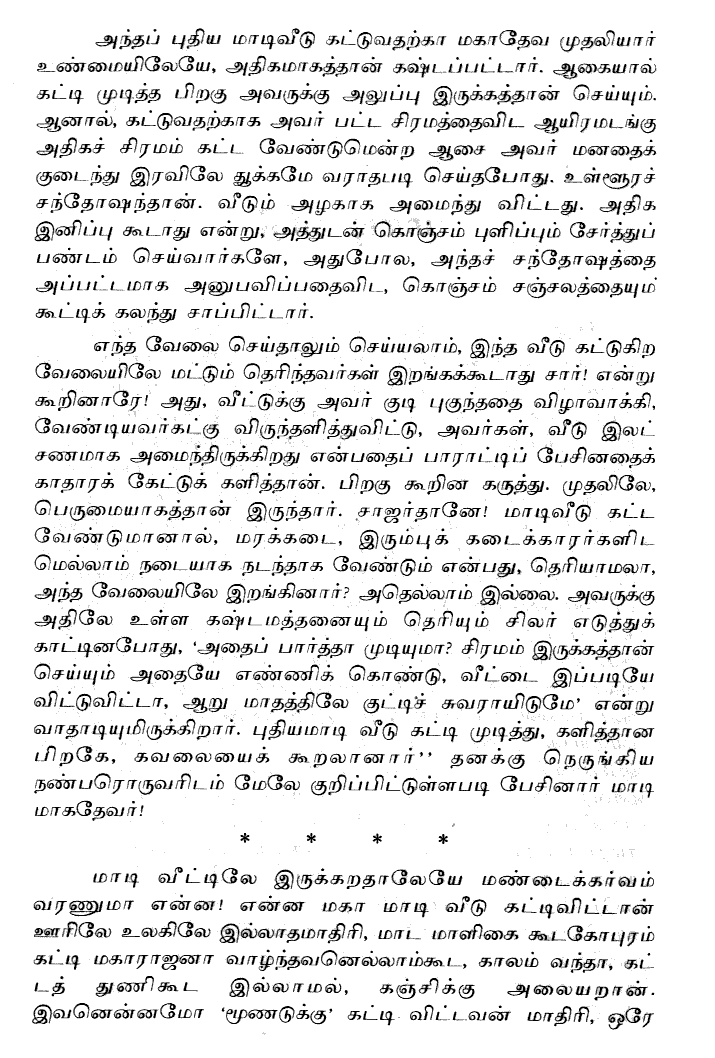 அந்தப் புதிய மாடிவீடு கட்டுவதற்கா மகாதேவ முதலியார்
உண்மையிலேயே, அதிகமாகத்தான் கஷ்டப்பட்டார். ஆகையால்
கட்டி முடித்த பிறகு அவருக்கு அலுப்பு இருக்கத்தான் செய்யும்.
ஆனால், கட்டுவதற்காக அவர் பட்ட சிரமத்தைவிட ஆயிரமடங்கு
அதிகச் சிரமம் கட்ட வேண்டுமென்ற ஆசை அவர் மனதைக்
குடைந்து இரவிலே தூக்கமே வராதபடி செய்தபோது. உள்ளூரச்
சந்தோஷந்தான். வீடும் அழகாக அமைந்து விட்டது. அதிக
இனிப்பு கூடாது என்று, அத்துடன் கொஞ்சம் புளிப்பும் சேர்த்துப்
பண்டம் செய்வார்களே, அதுபோல, அந்தச் சந்தோஷத்தை
அப்பட்டமாக அனுபவிப்பதைவிட, கொஞ்சம் சஞ்சலத்தையும்
கூட்டிக் கலந்து சாப்பிட்டார்.
எந்த வேலை செய்தாலும் செய்யலாம், இந்த வீடு கட்டுகிற
வேலையிலே மட்டும் தெரிந்தவர்கள் இறங்கக்கூடாது சார்! என்று
கூறினாரே! அது, வீட்டுக்கு அவர் குடி புகுந்ததை விழாவாக்கி,
வேண்டியவர்கட்கு விருந்தளித்துவிட்டு, அவர்கள், வீடு இலட்
சணமாக அமைந்திருக்கிறது என்பதைப் பாராட்டிப் பேசினதைக்
காதாரக் கேட்டுக் களித்தான். பிறகு கூறின கருத்து. முதலிலே,
பெருமையாகத்தான் இருந்தார். சாஜர்தானே! மாடிவீடு கட்ட
வேண்டுமானால், மரக்கடை, இரும்புக் கடைக்காரர்களிட
மெல்லாம் நடையாக நடந்தாக வேண்டும் என்பது, தெரியாமலா,
அந்த வேலையிலே இறங்கினார்? அதெல்லாம் இல்லை. அவருக்கு
அதிலே உள்ள கஷ்டமத்தனையும் தெரியும் சிலர் எடுத்துக்
காட்டினபோது, ‘அதைப் பார்த்தா முடியுமா? சிரமம் இருக்கத்தான்
செய்யும் அதையே எண்ணிக் கொண்டு, வீட்டை இப்படியே
விட்டுவிட்டா, ஆறு மாதத்திலே குட்டிச் சுவராயிடுமே’ என்று
வாதாடியுமிருக்கிறார். புதியமாடி வீடு கட்டி முடித்து, களித்தான
பிறகே, கவலையைக் கூறலானார்’’ தனக்கு நெருங்கிய
நண்பரொருவரிடம் மேலே குறிப்பிட்டுள்ளபடி பேசினார் மாடி
மாகதேவர்!
* * * *
மாடி வீட்டிலே இருக்கறதாலேயே மண்டைக்கர்வம்
வரணுமா என்ன! என்ன மகா மாடி வீடு கட்டிவிட்டான்
ஊரிலே உலகிலே இல்லாதமாதிரி, மாட மாளிகை கூடகோபுரம்
கட்டி மகாராஜனா வாழ்ந்தவனெல்லாம்கூட, காலம் வந்தா, கட்
டத் துணிகூட இல்லாமல், கஞ்சிக்கு அலையறான்.
இவனென்னமோ ‘மூணடுக்கு’ கட்டி விட்டவன் மாதிரி, ஒரே